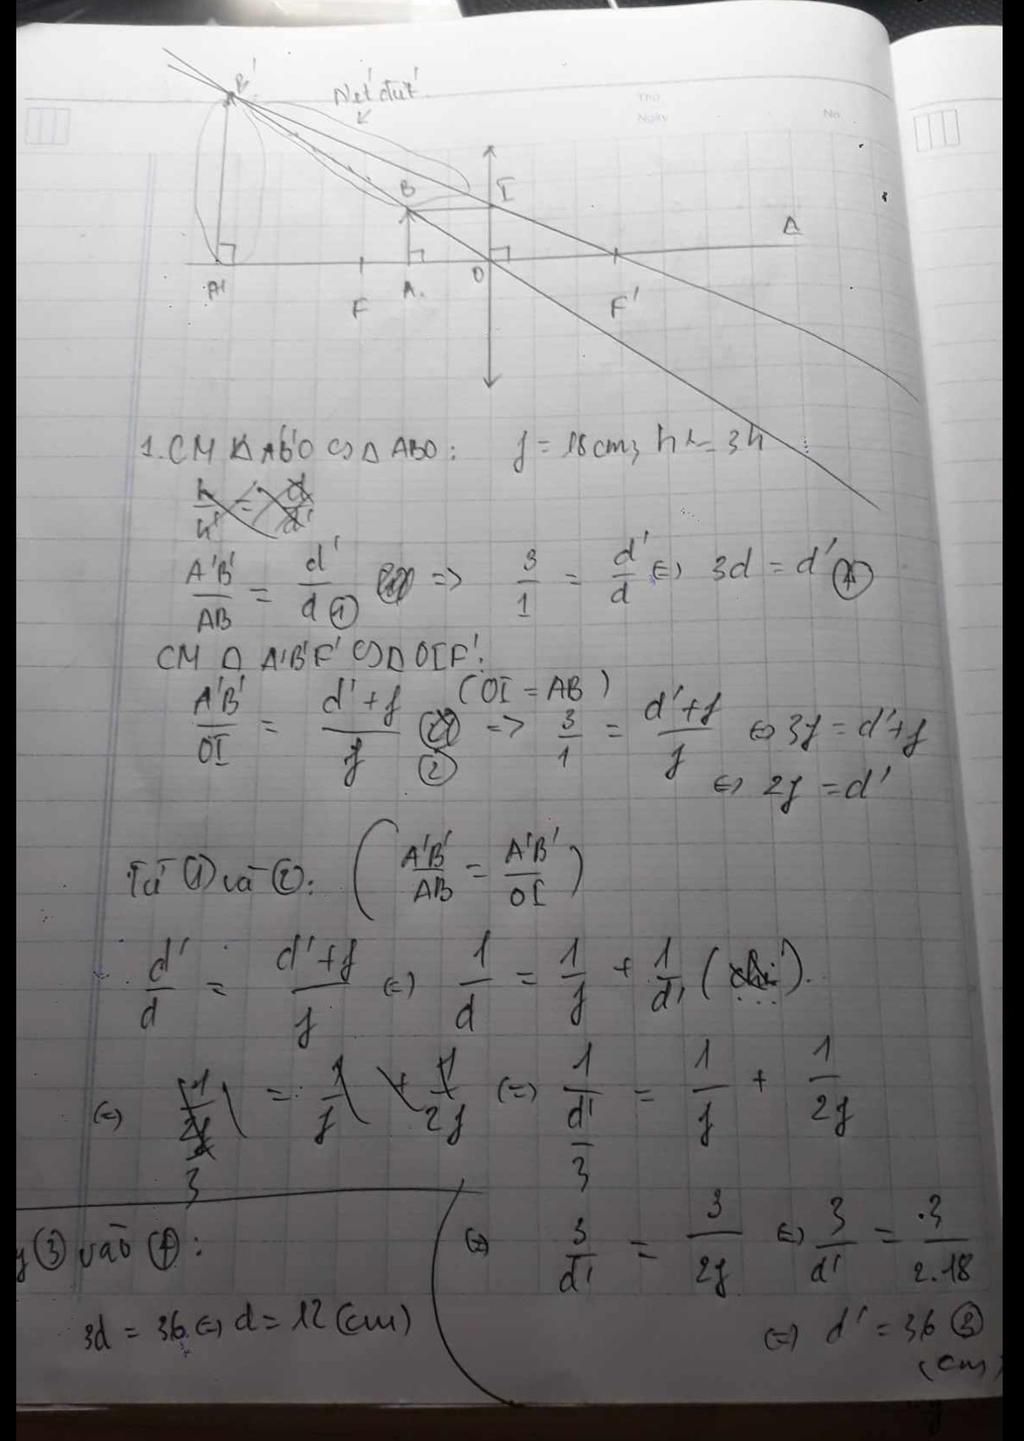 B'
Nét đứt
Thứ
Ngày
No
B
I
Δ
A'
F
A
O
F'
1. CM Δ A'B'O ∽ Δ ABO : f = 18cm, h' = 3h
h/h' = d/d'
A'B'/AB = d'/d (1) => 3/1 = d'/d <=> 3d = d' (4)
CM Δ A'B'F' ∽ Δ OIF':
A'B'/OI = (d'+f)/f (2) (OI = AB) => 3/1 = (d'+f)/f <=> 3f = d'+f
<=> 2f = d'
Từ (1) và (2): (A'B'/AB = A'B'/OI)
d'/d = (d'+f)/f <=> 1/d = 1/f + 1/d'
<=> 1/(2f/3) = 1/f + 1/2f <=> 1/(d'/3) = 1/f + 1/2f
<=> 3/d' = 3/2f <=> 3/d' = 3/2.18
<=> d' = 36 (3)
(cm)
y (3) vào (4):
3d = 36 <=> d = 12 (cm)